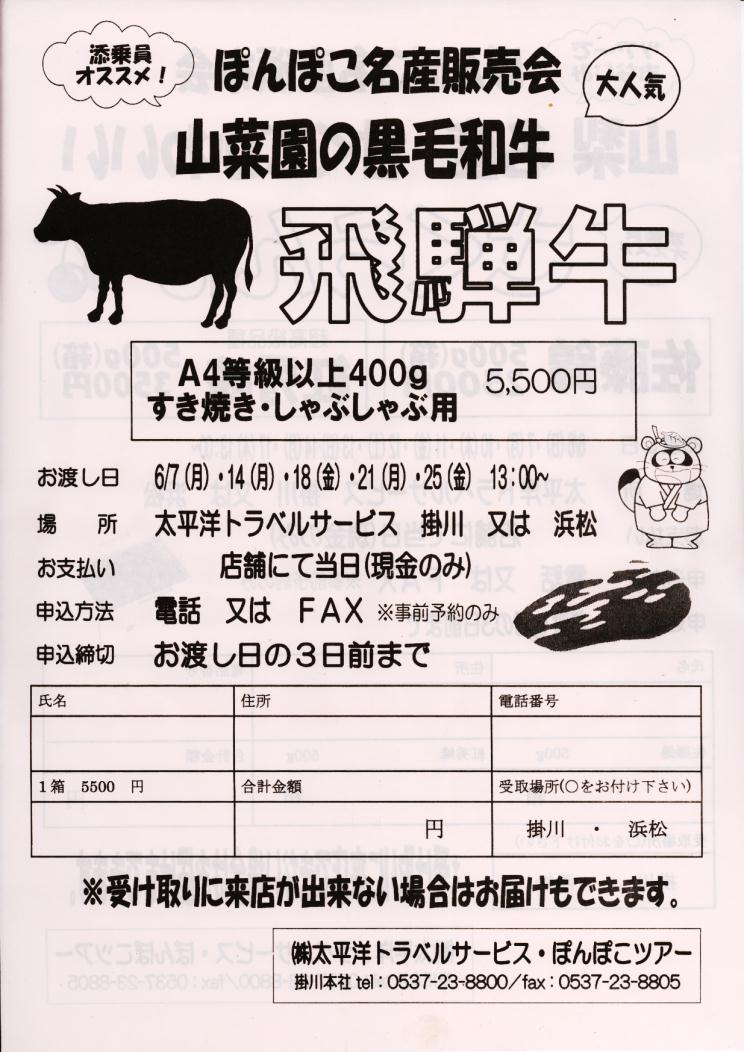 添乗員
オススメ!
ぽんぽこ名産販売会
大人気
山菜園の黒毛和牛
飛騨牛
A4等級以上400g
すき焼き・しゃぶしゃぶ用
5,500円
お渡し日 6/7(月)・14(月)・18(金)・21(月)・25(金) 13:00~
場 所 太平洋トラベルサービス 掛川 又は 浜松
お支払い 店舗にて当日(現金のみ)
申込方法 電話 又は FAX ※事前予約のみ
申込締切 お渡し日の3日前まで
氏名 住所 電話番号
1箱 5500 円 合計金額 受取場所(○をお付け下さい)
円 掛川 ・ 浜松
※受け取りに来店が出来ない場合はお届けもできます。
㈱太平洋トラベルサービス・ぽんぽこツアー
掛川本社 tel:0537-23-8800/fax:0537-23-8805